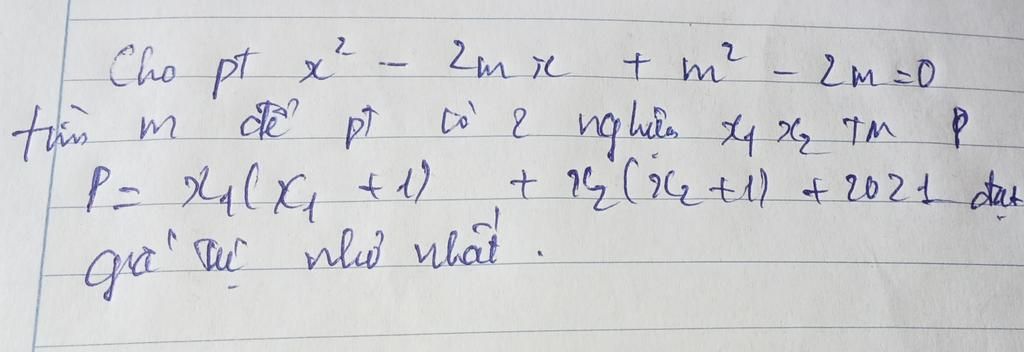 Cho pt x² - 2mx + m² - 2m = 0
tìm m để pt có 2 nghiệm x₁ x₂ TM P
P = x₁(x₁ + 1) + x₂(x₂ + 1) + 2021 đạt
giá trị nhỏ nhất.